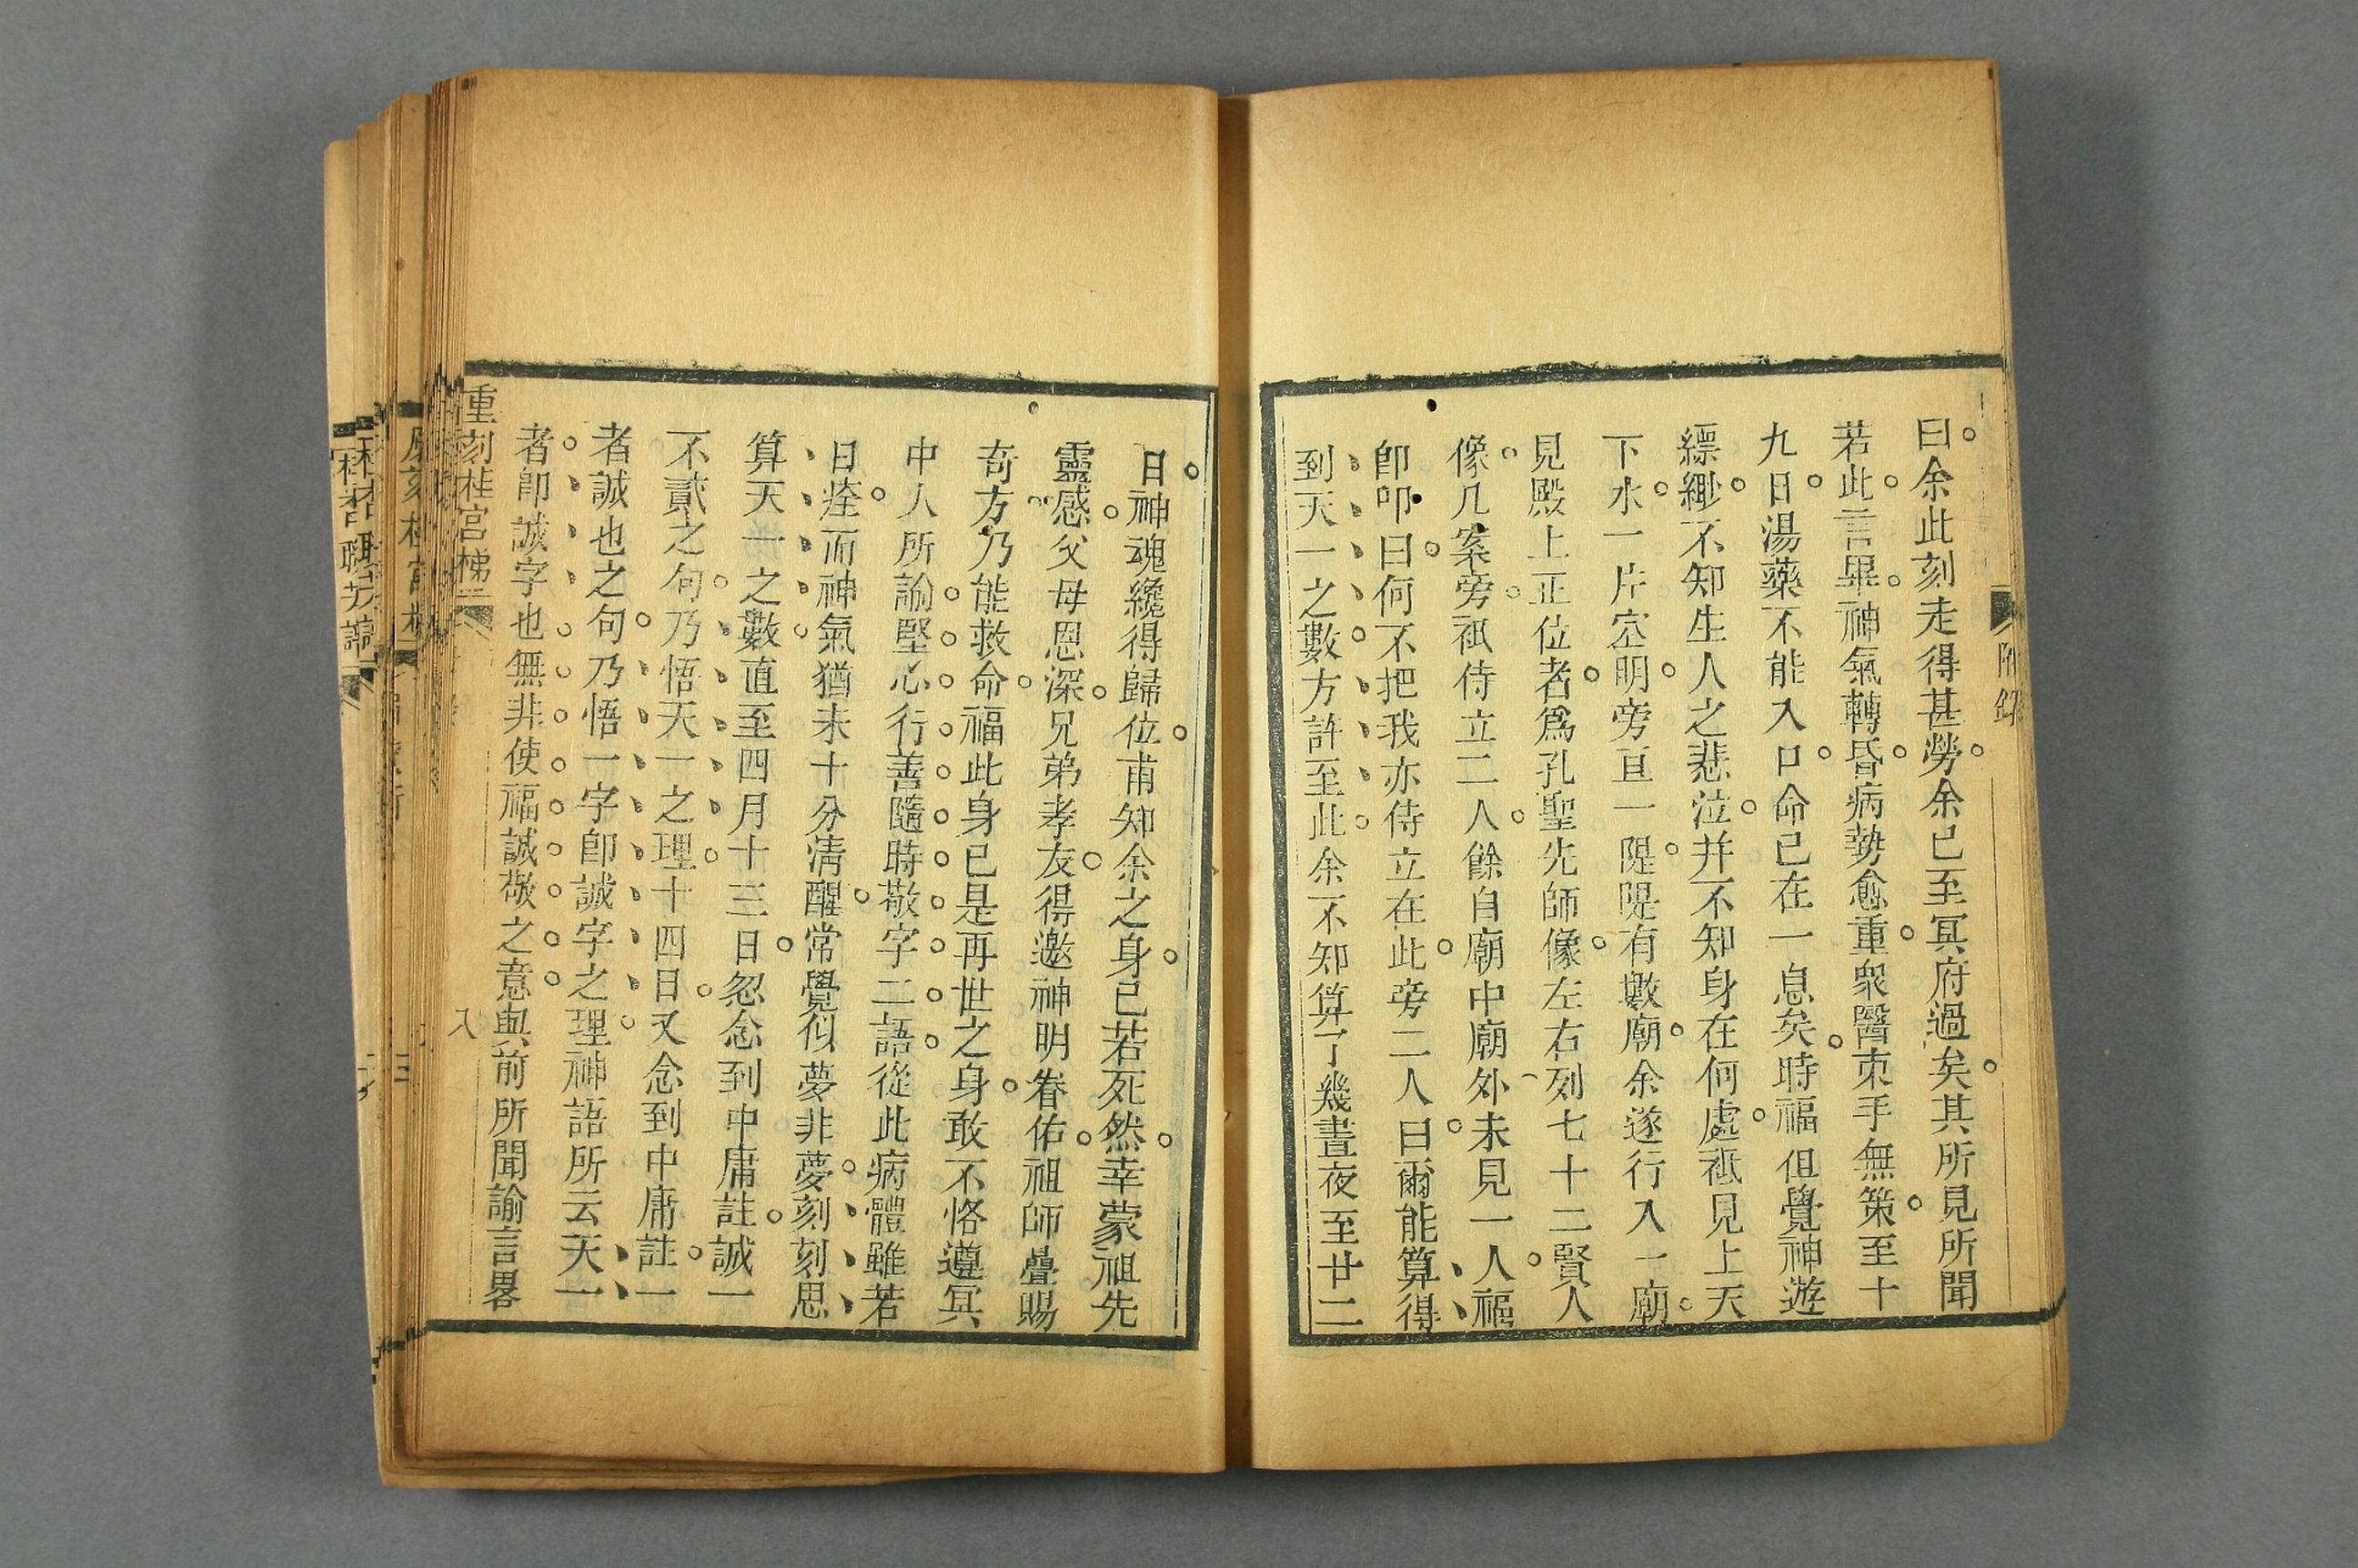 附錄
曰余此刻走得甚勞余已至冥府過矣其所見所聞
若此言畢神氣轉昏病勢愈重衆醫束手無策至十
九日湯藥不能入口命已在一息矣時福但覺神遊
縹緲不知生人之悲泣并不知身在何處祗見上天
下水一片空明旁直一隄隄有數廟余遂行入一廟
見殿上正位者爲孔聖先師像左右列七十二賢人
像几案旁祗侍立二人餘自廟中廟外未見一人福
卽叩曰何不把我亦侍立在此旁二人曰爾能算得
到天一之數方許至此余不知算了幾晝夜至廿二
日神魂纔得歸位甫知余之身已若死然幸蒙祖先
靈感父母恩深兄弟孝友得邀神明眷佑祖師疊賜
奇方乃能救命福此身已是再世之身敢不恪遵冥
中人所諭堅心行善隨時敬字二語從此病體雖若
日痊而神氣猶未十分淸醒常覺似夢非夢刻刻思
算天一之數直至四月十三日忽念到中庸註誠一
不貳之句乃悟天一之理十四日又念到中庸註一
者誠也之句乃悟一字卽誠字之理神語所云天一
者卽誠字也無非使福誠敬之意與前所聞諭言畧
重刻桂宮梯
八